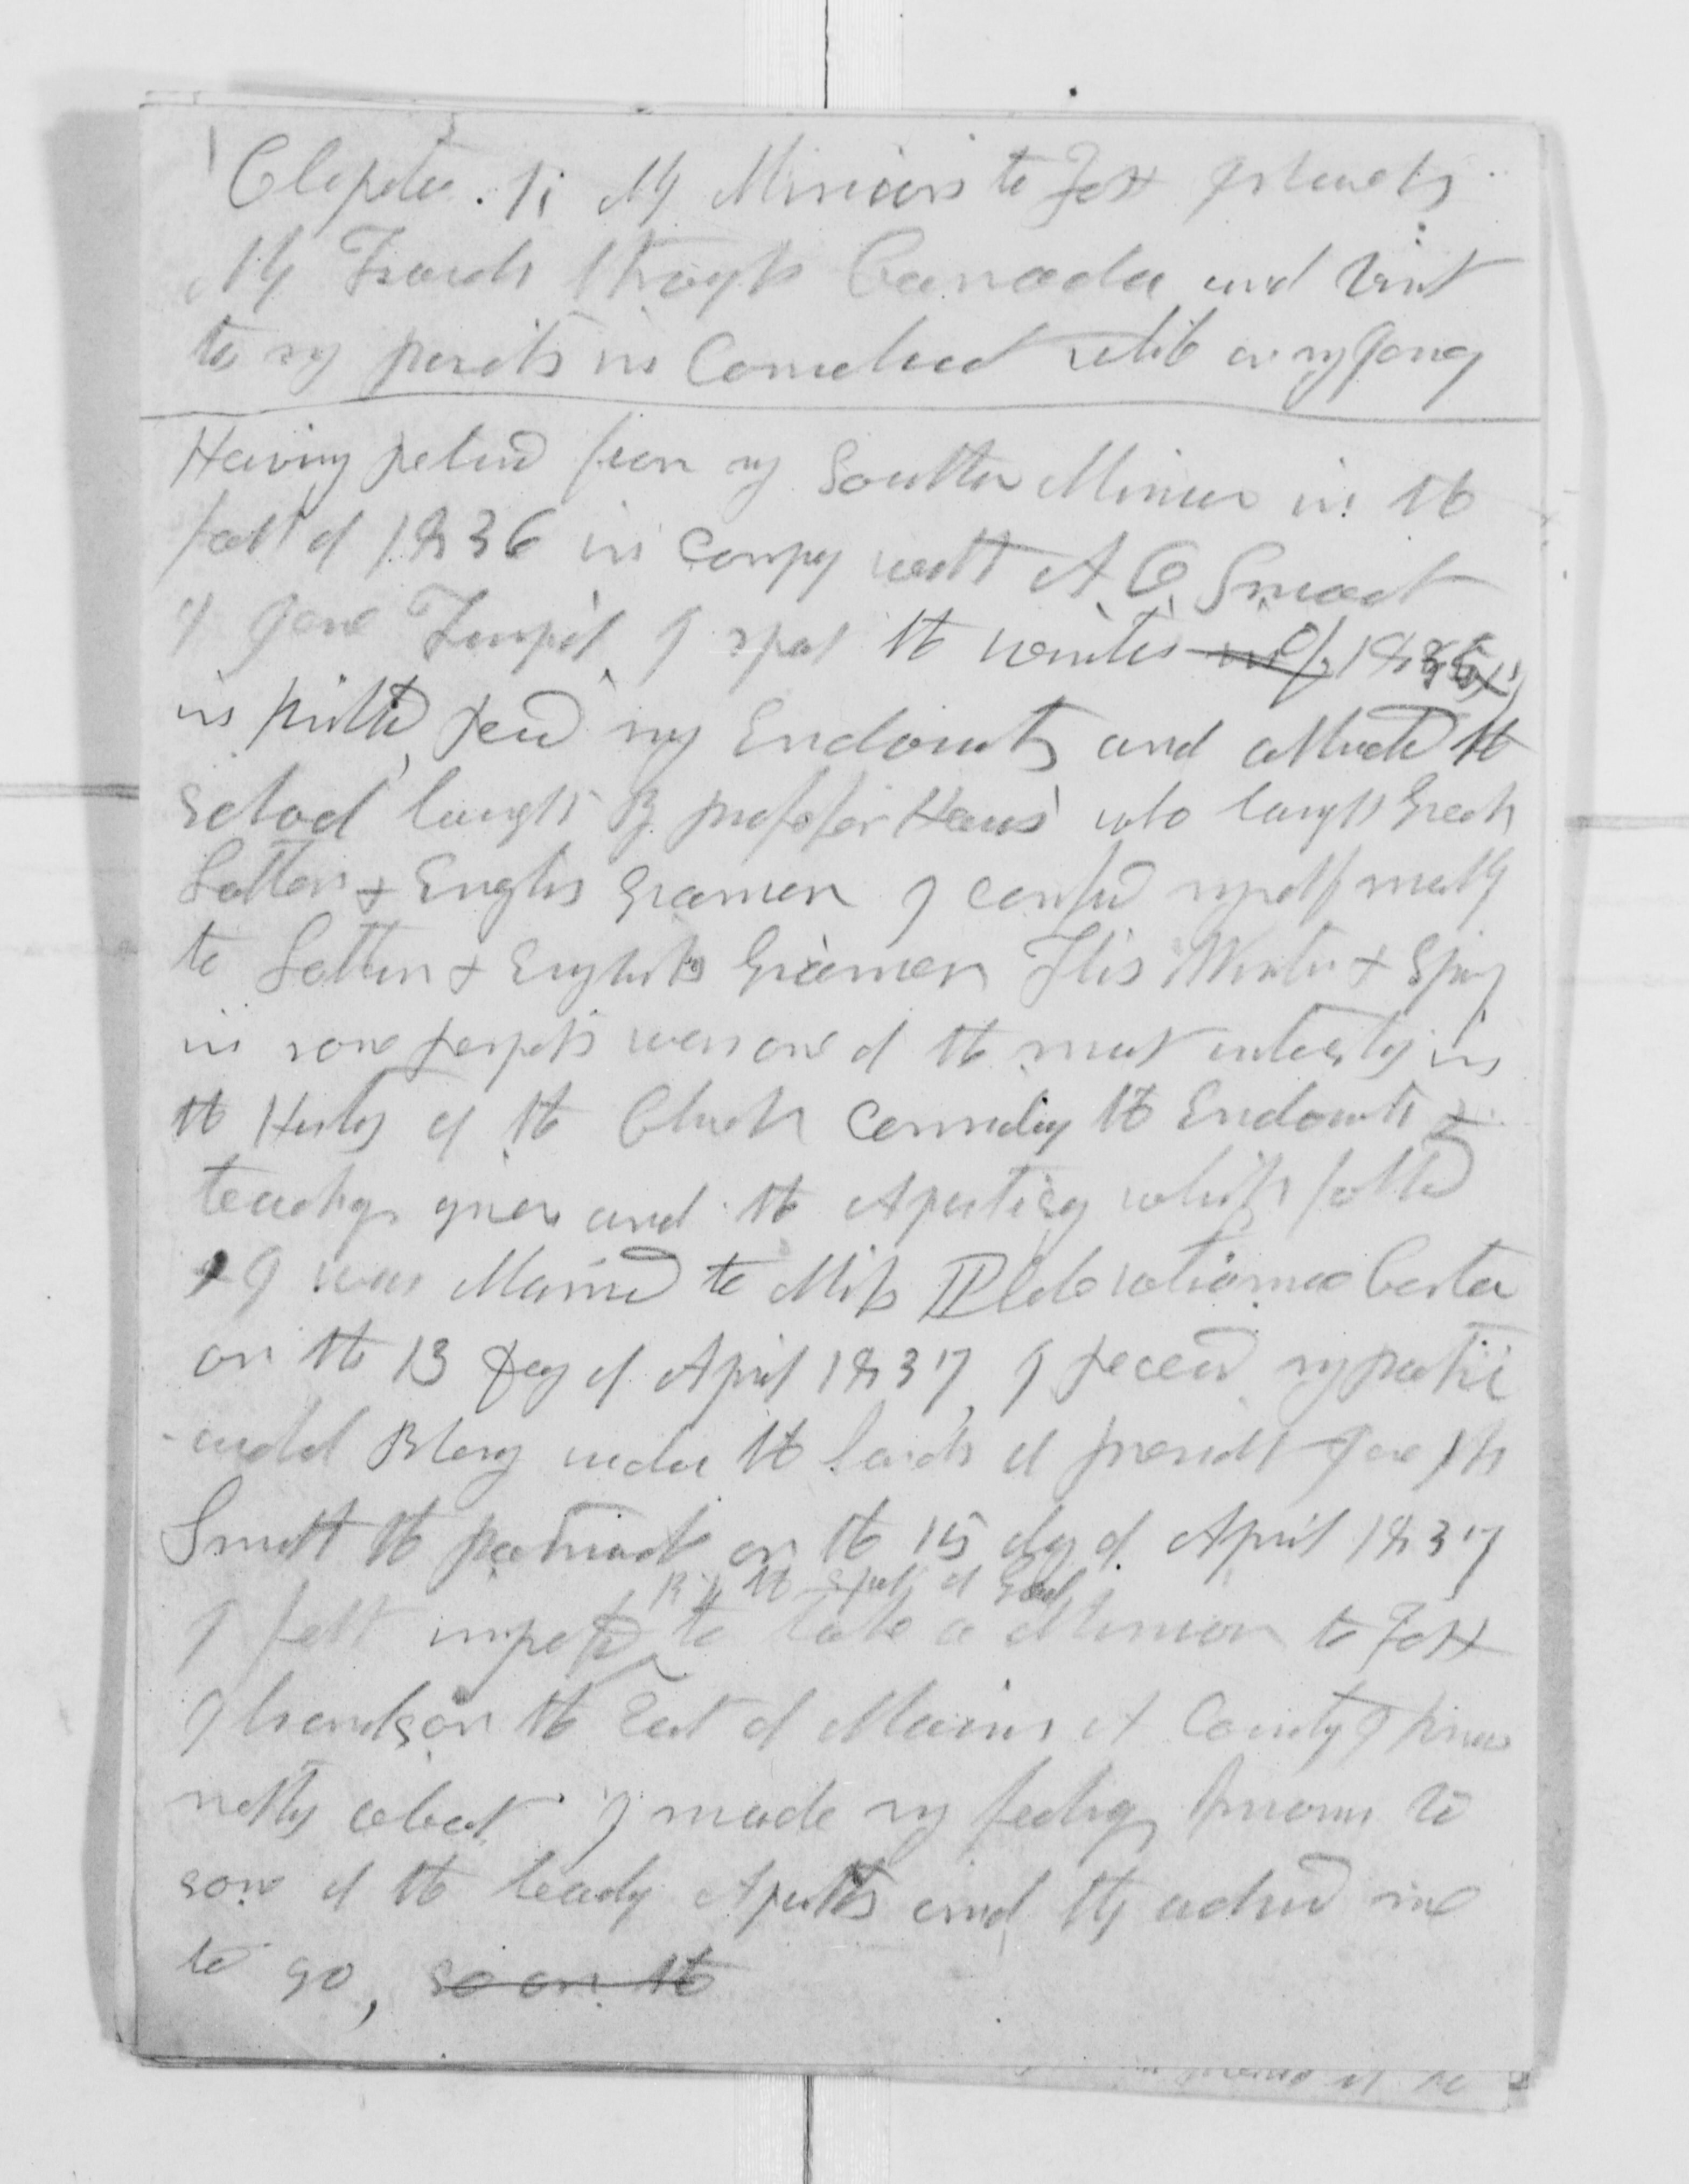 Chapter. 1; My Mission to Fox Islands
My Travels through Canada and visit
to my parents in Connecticut while on my Jorney
Having returned from my Southern Mission in the
fall of 1836 in company with A O Smoot
& Jesse Turpin I spent the winter of 1836,7
in Kirtland, received my Endowments and attended the
School taught By professor Haws who taught Greek
Latten & English Gramer I confined myself mostly
to Latten & English Gramer This Winter & Spring
in some respets was one of the most interesting in
the History of the Church Considering the Endowments &
teachings given and the Apostacy which followed
I was Married to Miss Phebe Whitmore Carter
on the 13 day of April 1837, I received my patri
-archal Blessing under the hands of president Joseph
Smith the patriarch on the 15 day of April 1837
By the Spirit of God
I felt impressed to take a Mission to Fox
Islands on the East of Maine A County I knew
nothing about I made my feelings known to
some of the leading Apostles and they advised me
to go, so on the